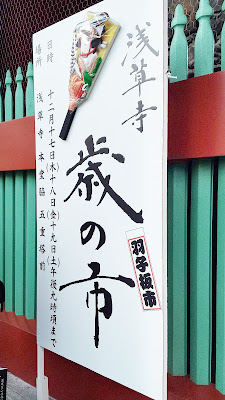 浅草寺
歳の市
羽子板市
日時 十二月十七日(木)十八日(金)十九日(土)午後九時頃まで
場所 浅草寺本堂脇 五重塔前